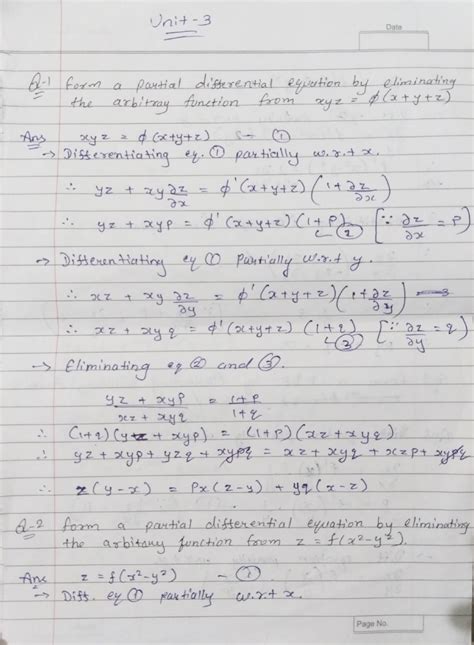 Unit-3
Date
Q-1 form a partial differential equation by eliminating
the arbitray function from xyz = ϕ(x+y+z)
Ans xyz = ϕ(x+y+z) — ①
→ Differentiating eq. ① partially w.r.t x.
∴ yz + xy ∂z/∂x = ϕ'(x+y+z) (1+∂z/∂x)
∴ yz + xyp = ϕ'(x+y+z) (1+p) [∵ ∂z/∂x = p]
②
→ Differentiating eq ① Partially w.r.t y.
∴ xz + xy ∂z/∂y = ϕ'(x+y+z) (1+∂z/∂y) — 3
∴ xz + xyq = ϕ'(x+y+z) (1+q) [∵ ∂z/∂y = q]
③
→ Eliminating eq ② and ③.
yz + xyp / xz + xyq = 1+p / 1+q
∴ (1+q)(yz + xyp) = (1+p)(xz+xyq)
∴ yz + xyp + yzq + xypq = xz + xyq + xzp + xypq
∴ z(y-x) = px(z-y) + yq(x-z)
Q-2 form a partial differential equation by eliminating
the arbitary function from z = f(x²-y²).
Ans z = f(x²-y²) — ①
→ Diff. eq ① partially w.r.t x.
Page No.